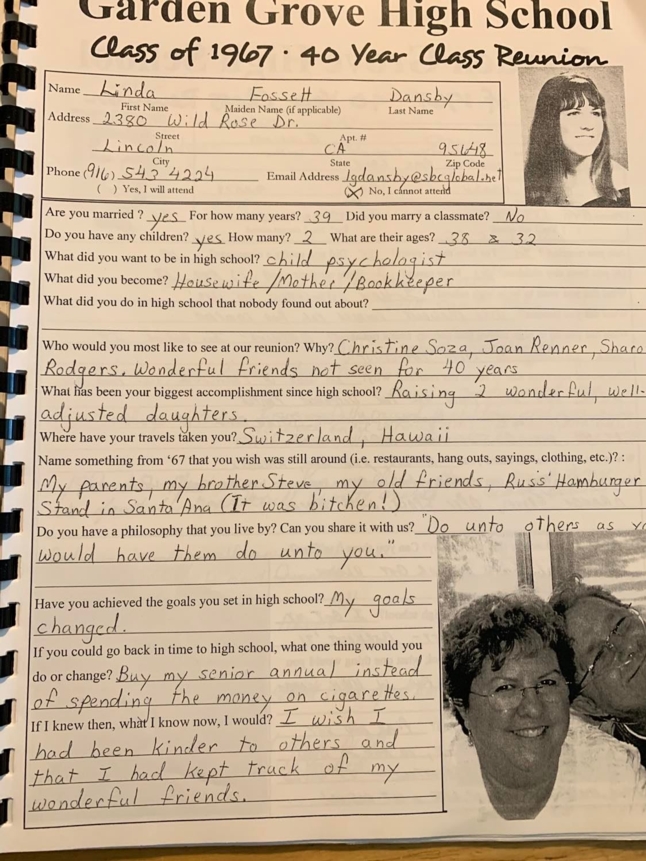 Garden Grove High School
Class of 1967 · 40 Year Class Reunion
Name Linda Fossett Dansby
First Name Maiden Name (if applicable) Last Name
Address 2380 Wild Rose Dr.
Street Apt. #
Lincoln CA 95648
City State Zip Code
Phone (916) 543 4224 Email Address lgdansby@sbcglobal.net
( ) Yes, I will attend (X) No, I cannot attend
Are you married ? yes For how many years? 39 Did you marry a classmate? No
Do you have any children? yes How many? 2 What are their ages? 38 & 32
What did you want to be in high school? child psychologist
What did you become? Housewife / Mother / Bookkeeper
What did you do in high school that nobody found out about?
Who would you most like to see at our reunion? Why? Christine Soza, Joan Renner, Sharo
Rodgers. Wonderful friends not seen for 40 years
What has been your biggest accomplishment since high school? Raising 2 wonderful, well-
adjusted daughters.
Where have your travels taken you? Switzerland, Hawaii
Name something from ‘67 that you wish was still around (i.e. restaurants, hang outs, sayings, clothing, etc.)? :
My parents, my brother Steve, my old friends, Russ' Hamburger
Stand in Santa Ana (It was bitchen!)
Do you have a philosophy that you live by? Can you share it with us? "Do unto others as yo
would have them do unto you."
Have you achieved the goals you set in high school? My goals
changed.
If you could go back in time to high school, what one thing would you
do or change? Buy my senior annual instead
of spending the money on cigarettes.
If I knew then, what I know now, I would? I wish I
had been kinder to others and
that I had kept track of my
wonderful friends.